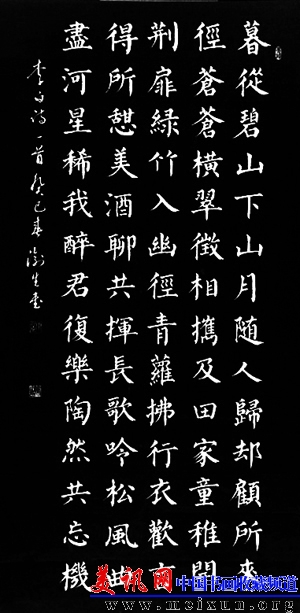 暮從碧山下山月随人歸却顧所来
徑蒼蒼橫翠微相攜及田家童稚開
荆扉緑竹入幽徑青蘿拂行衣歡言
得所憇美酒聊共揮長歌吟松風曲
盡河星稀我醉君復樂陶然共忘機
李白诗一首癸巳春澍生書
美讯网 中国书画收藏频道
www.meixun.org